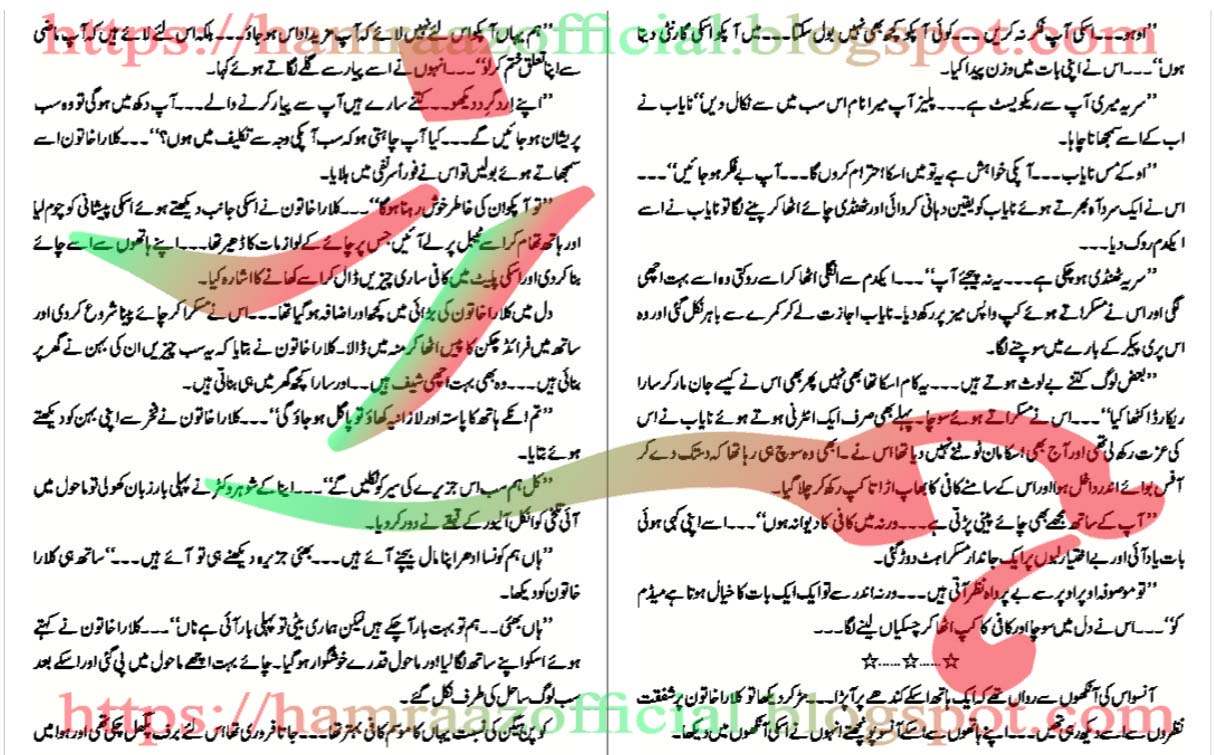 https://hamraazofficial.blogspot.com
”اوہو۔۔۔اسکی آپ فکر نہ کریں۔۔۔۔کوئی آپکو کچھ بھی نہیں بول سکتا۔۔۔۔میں آپکو اسکی گارنٹی دیتا
ہوں“۔۔۔۔اس نے اپنی بات میں وزن پیدا کیا۔
”سریہ میری آپ سے ریکویسٹ ہے۔۔۔۔پلیز آپ میرا نام اس سب میں سے نکال دیں“ نایاب نے
اب کے اسے سمجھانا چاہا۔
”اوکے مس نایاب۔۔۔۔آپکی خواہش ہے یہ تو میں اسکا احترام کروں گا۔۔۔۔آپ بے فکر ہو جائیں“۔۔۔۔
اس نے ایک سرد آہ بھرتے ہوئے نایاب کو یقین دہانی کروائی اور ٹھنڈی چائے اٹھا کر پینے لگا تو نایاب نے اسے
ایکدم روک دیا۔۔۔
”سریہ ٹھنڈی ہو چکی ہے۔۔۔۔یہ نہ پیجئے آپ“۔۔۔۔ایکدم سے انگلی اٹھا کر اسے روکتی وہ اسے بہت اچھی
لگی اور اس نے مسکراتے ہوئے کپ واپس میز پر رکھ دیا۔نایاب اجازت لے کر کمرے سے باہر نکل گئی اور وہ
اس پری پیکر کے بارے میں سوچنے لگا۔
”بعض لوگ کتنے بے لوث ہوتے ہیں۔۔۔۔یہ کام اسکا تھا بھی نہیں پھر بھی اس نے کیسے جان مار کر سارا
ریکارڈ اکٹھا کیا“۔۔۔۔اس نے مسکراتے ہوئے سوچا۔پہلے بھی صرف ایک انٹرنی ہوتے ہوئے نایاب نے اس
کی عزت رکھ لی تھی اور آج بھی اسکا مان ٹوٹنے نہیں دیا تھا اس نے۔ابھی وہ سوچ ہی رہا تھا کہ دستک دے کر
آفس بوائے اندر داخل ہوا اور اس کے سامنے کافی کا بھاپ اڑاتا کپ رکھ کر چلا گیا۔
”آپ کے ساتھ مجھے بھی چائے پینی پڑتی ہے۔۔۔۔ورنہ میں کافی کا دیوانہ ہوں“۔۔۔۔اسے اپنی کہی ہوئی
بات یاد آئی اور بے اختیار لبوں پر ایک جاندار مسکراہٹ دوڑ گئی۔
”تو موصوفہ اوپر اوپر سے بے پرواہ نظر آتی ہیں۔۔۔۔ورنہ اندر سے تو ایک ایک بات کا خیال ہوتا ہے میڈم
کو“۔۔۔۔اس نے دل میں سوچا اور کافی کا کپ اٹھا کر چسکیاں لینے لگا۔۔۔
☆......☆......☆
آنسو اس کی آنکھوں سے رواں تھے کہ ایک ہاتھ اسکے کندھے پر آ پڑا۔۔۔۔مڑ کر دیکھا تو کلارا خاتون پر شفقت
نظروں سے اسے دیکھ رہی تھیں۔۔۔۔اپنے ہاتھوں سے اسکے آنسو پونچھتے انہوں نے اسکی آنکھوں میں دیکھا۔
”ہم یہاں آپکو اس لئے نہیں لائے کہ آپ مزید اداس ہو جاؤ۔۔۔۔بلکہ اس لئے لائے ہیں کہ آپ ماضی
سے اپنا تعلق ختم کر لو“۔۔۔۔انہوں نے اسے پیار سے گلے لگاتے ہوئے کہا۔
”اپنے ارد گرد دیکھو۔۔۔۔کتنے سارے ہیں آپ سے پیار کرنے والے۔۔۔۔آپ دکھ میں ہوگی تو وہ سب
پریشان ہو جائیں گے۔۔۔۔کیا آپ چاہتی ہو کہ سب آپکی وجہ سے تکلیف میں ہوں؟“۔۔۔۔کلارا خاتون اسے
سمجھاتے ہوئے بولیں تو اس نے فوراً سر نفی میں ہلایا۔
”تو آپکو ان کی خاطر خوش رہنا ہوگا“۔۔۔۔کلارا خاتون نے اسکی جانب دیکھتے ہوئے اسکی پیشانی کو چوم لیا
اور ہاتھ تھام کر اسے ٹیبل پر لے آئیں جس پر چائے کے لوازمات کا ڈھیر تھا۔۔۔۔اپنے ہاتھوں سے اسے چائے
بنا کر دی اور اسکی پلیٹ میں کافی ساری چیزیں ڈال کر اسے کھانے کا اشارہ کیا۔
دل میں کلارا خاتون کی بڑائی میں کچھ اور اضافہ ہو گیا تھا۔۔۔۔اس نے مسکرا کر چائے پینا شروع کر دی اور
ساتھ میں فرائڈ چکن کا پیس اٹھا کر منہ میں ڈالا۔کلارا خاتون نے بتایا کہ یہ سب چیزیں ان کی بہن نے گھر پر
بنائی ہیں۔۔۔۔وہ بھی بہت اچھی شیف ہیں۔۔اور سارا کچھ گھر میں ہی بناتی ہیں۔
”تم انکے ہاتھ کا پاستہ اور لازانیہ کھاؤ تو پاگل ہو جاؤ گی“۔۔۔۔کلارا خاتون نے فخر سے اپنی بہن کو دیکھتے
ہوئے بتایا۔
”کل ہم سب اس جزیرے کی سیر کو نکلیں گے“۔۔۔۔اینا کے شوہر ولٹر نے پہلی بار زبان کھولی تو ماحول میں
آئی تلخی کو انکل آلیور کے قہقہے نے دور کر دیا۔
”ہاں ہم کونسا ادھر اپنا مال بیچنے آئے ہیں۔۔۔۔بھئی جزیرہ دیکھنے ہی تو آئے ہیں۔۔۔“ ساتھ ہی کلارا
خاتون کو دیکھا۔
”ہاں بھئی۔۔ہم تو بہت بار آ چکے ہیں لیکن ہماری بیٹی تو پہلی بار آئی ہے ناں“۔۔۔۔کلارا خاتون نے کہتے
ہوئے اسکو اپنے ساتھ لگا لیا اور ماحول قدرے خوشگوار ہو گیا۔چائے بہت اچھے ماحول میں پی گئی اور اسکے بعد
سب لوگ ساحل کی طرف نکل گئے۔
کوپن ہیگن کی نسبت یہاں کا موسم کافی بہتر تھا۔۔۔۔جاتا فروری تھا اس لئے برف پگھل چکی تھی اور ہوا میں
https://hamraazofficial.blogspot.com